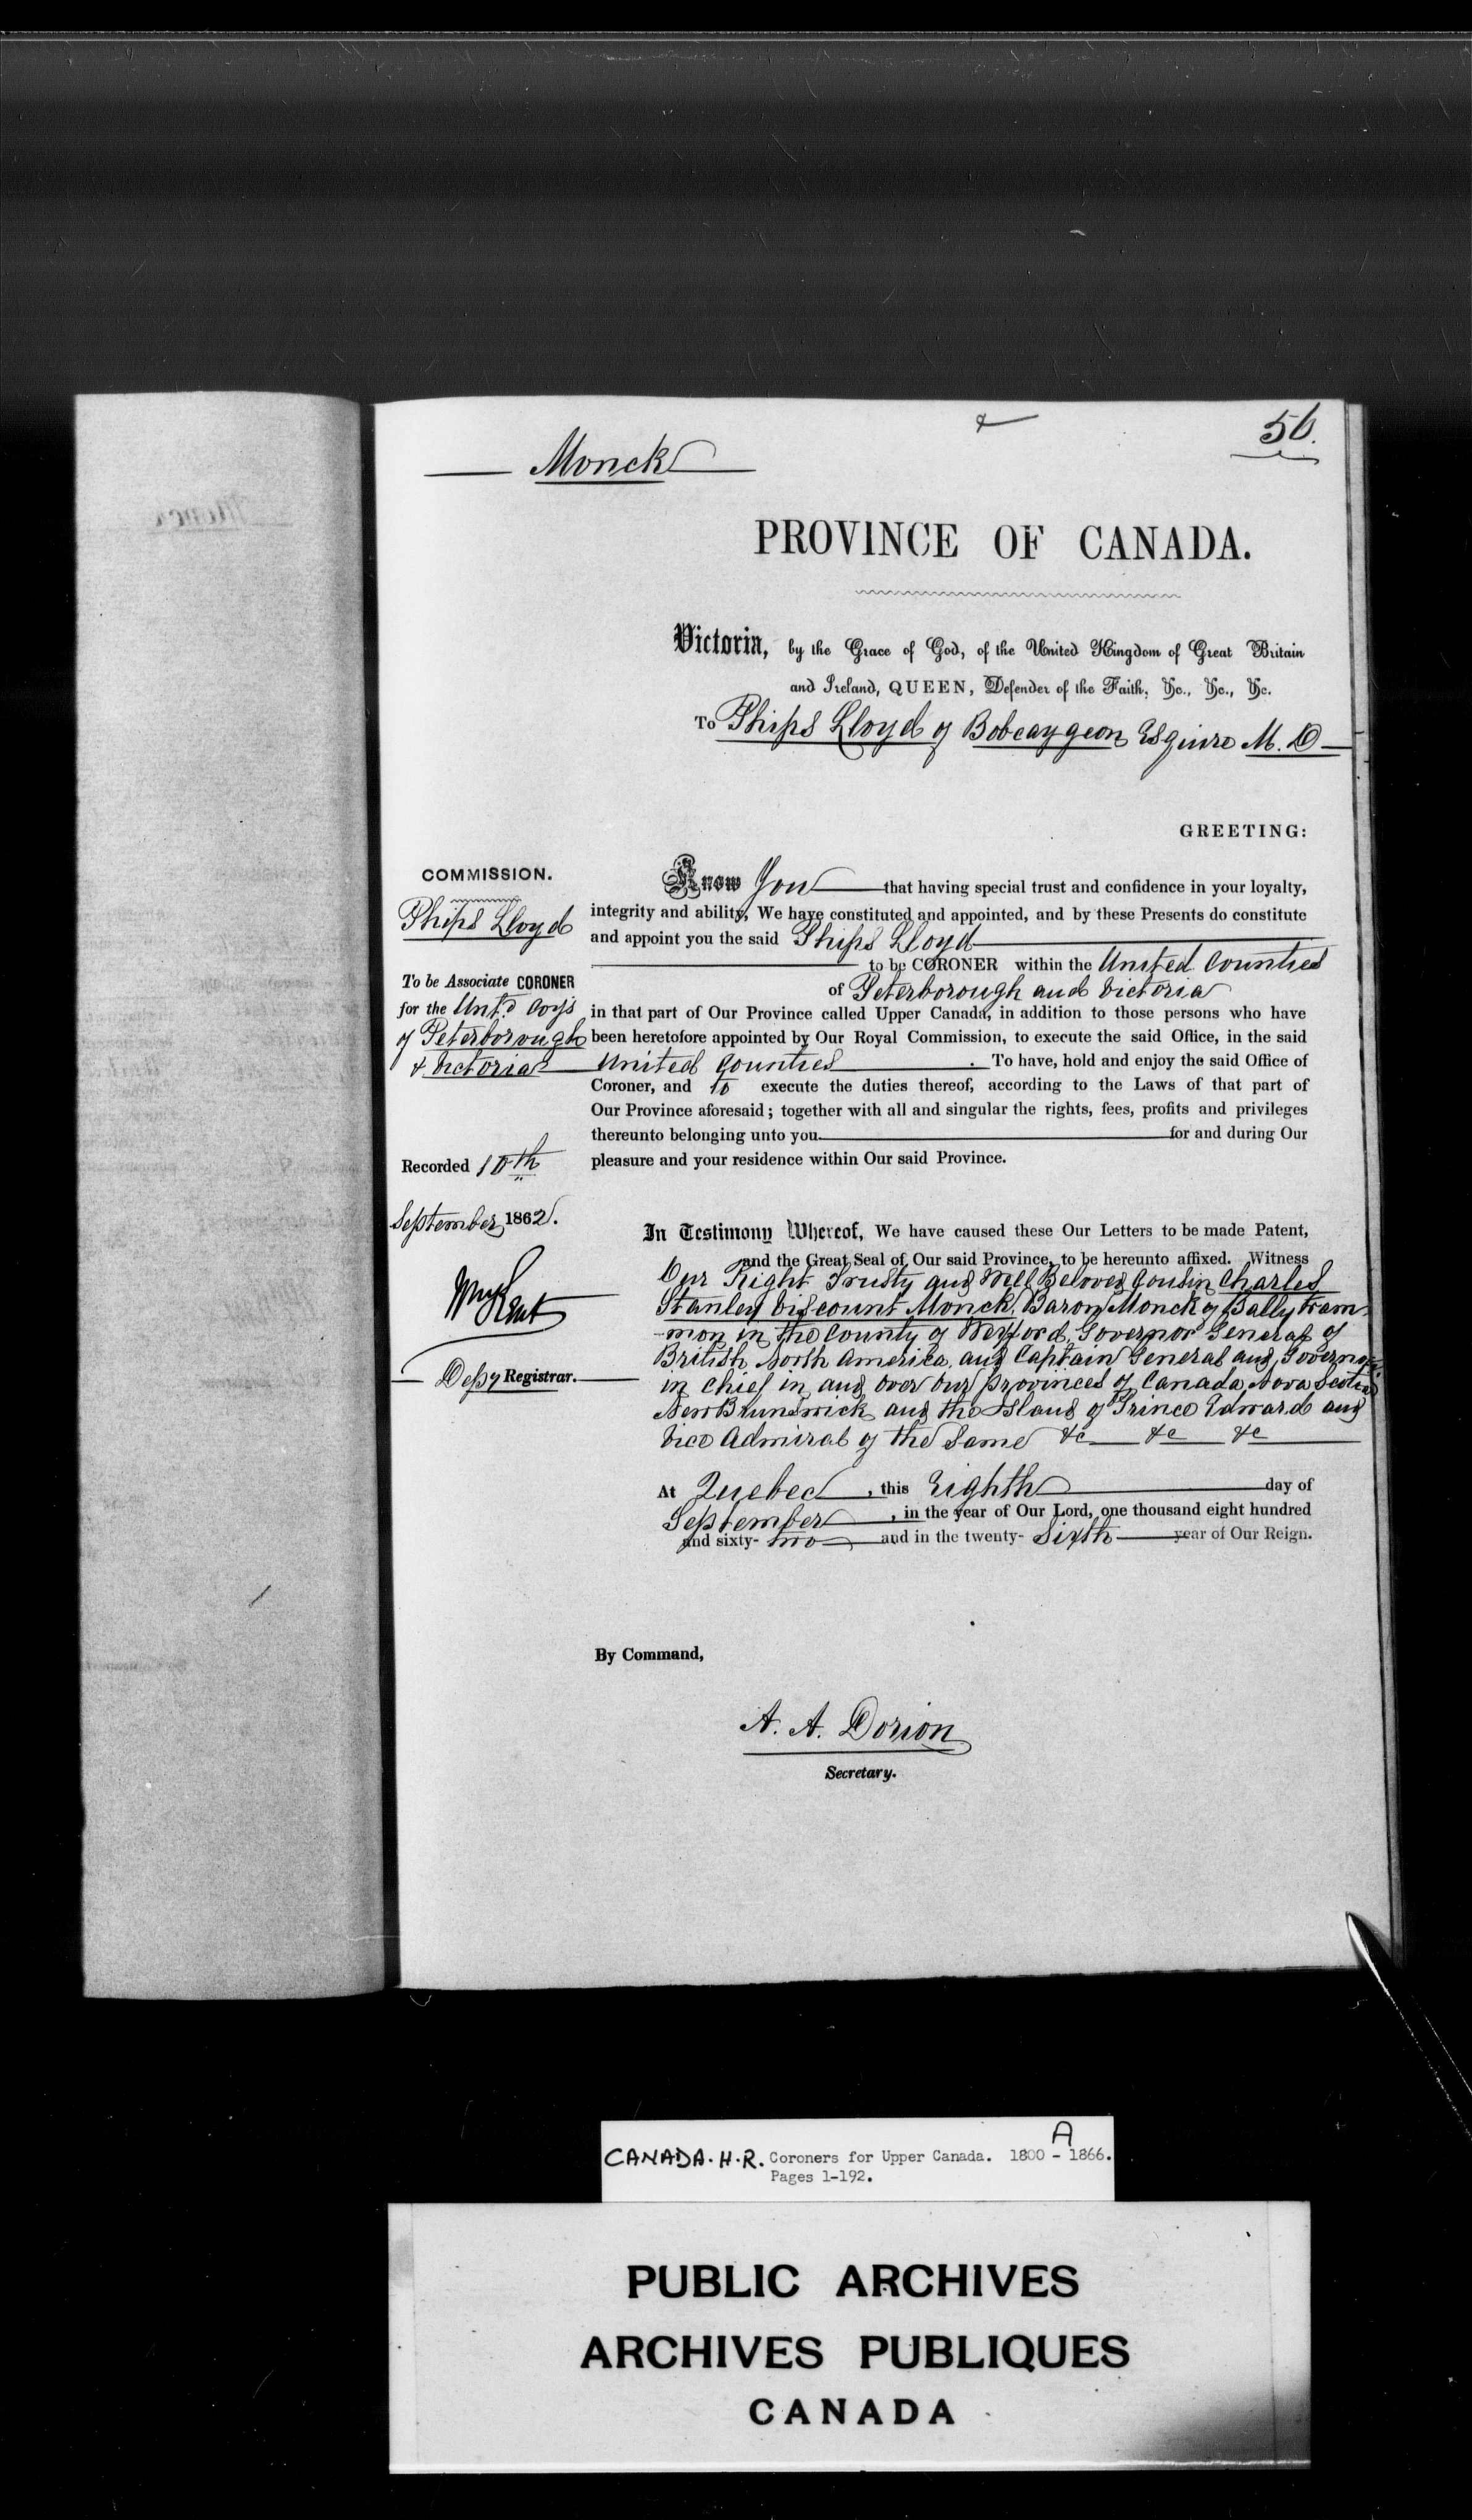 Monck
56.
PROVINCE OF CANADA.
Victoria, by the Grace of God, of the United Kingdom of Great Britain
and Ireland, QUEEN, Defender of the Faith, &c., &c., &c.
To Phips Lloyd of Bobcaygeon Esquire M. D
GREETING:
COMMISSION.
Phips Lloyd
To be Associate CORONER
for the Unt.d Coys
of Peterborough
& Victoria
Recorded 10th
September 1862.
Depy Registrar.
Know You that having special trust and confidence in your loyalty,
integrity and ability, We have constituted and appointed, and by these Presents do constitute
and appoint you the said Phips Lloyd
to be CORONER within the United Counties
of Peterborough and Victoria
in that part of Our Province called Upper Canada, in addition to those persons who have
been heretofore appointed by Our Royal Commission, to execute the said Office, in the said
United Counties . To have, hold and enjoy the said Office of
Coroner, and to execute the duties thereof, according to the Laws of that part of
Our Province aforesaid; together with all and singular the rights, fees, profits and privileges
thereunto belonging unto you for and during Our
pleasure and your residence within Our said Province.
In Testimony Whereof, We have caused these Our Letters to be made Patent,
and the Great Seal of Our said Province, to be hereunto affixed. Witness
Our Right Trusty and Well Beloved Cousin Charles
Stanley Viscount Monck, Baron Monck of Ballytram-
-mon in the County of Wexford, Governor General of
British North America, and Captain General and Governor
in Chief in and over Our Provinces of Canada, Nova Scotia
New Brunswick and the Island of Prince Edward and
Vice Admiral of the Same &c &c &c
At Quebec, this Eighth day of
September, in the year of Our Lord, one thousand eight hundred
and sixty- two and in the twenty- Sixth year of Our Reign.
By Command,
A. A. Dorion
Secretary.
A
CANADA. H.R. Coroners for Upper Canada. 1800 - 1866.
Pages 1-192.
PUBLIC ARCHIVES
ARCHIVES PUBLIQUES
CANADA